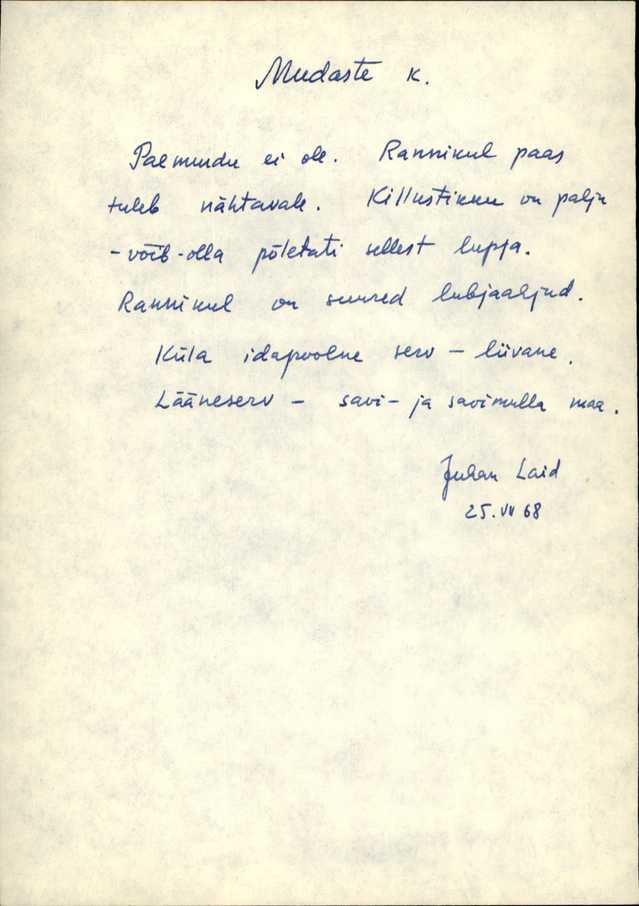 Mudaste k.
Paemurdu ei ole. Rannikul paas
tuleb nähtavale. Killustikku on palju
- võib-olla põletati sellest lupja.
Rannikul on suured lubjaahjud.
Küla idapoolne serv - liivane.
Lääneserv - savi- ja savimulla maa.
Juhan Laid
25. VII 68